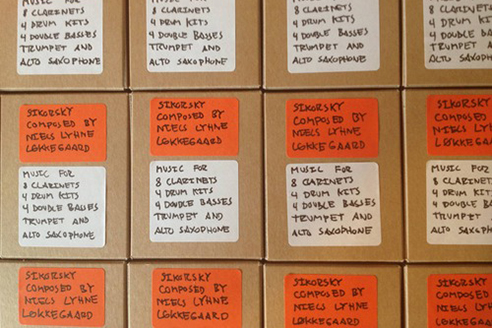 MUSIC FOR
8 CLARINETS
4 DRUM KITS
4 DOUBLE BASSES
TRUMPET AND
ALTO SAXOPHONE
MUSIC FOR
8 CLARINETS
4 DRUM KITS
4 DOUBLE BASSES
TRUMPET AND
ALTO SAXOPHONE
MUSIC FOR
8 CLARINETS
4 DRUM KITS
4 DOUBLE BASSES
TRUMPET AND
ALTO SAXOPHONE
8
4 DRUM
4 DOUBLE
TRUMPET
ALTO
SIKORSKY
COMPOSED BY
NIELS LYHNE
LØKKEGAARD
MUSIC FOR
8 CLARINETS
4 DRUM KITS
4 DOUBLE BASSES
TRUMPET AND
ALTO SAXOPHONE
SIKORSKY
COMPOSED BY
NIELS LYHNE
LØKKEGAARD
MUSIC FOR
8 CLARINETS
4 DRUM KITS
4 DOUBLE BASSES
TRUMPET AND
ALTO SAXOPHONE
SIKORSKY
COMPOSED BY
NIELS LYHNE
LØKKEGAARD
MUSIC FOR
8 CLARINETS
4 DRUM KITS
4 DOUBLE BASSES
TRUMPET AND
ALTO SAXOPHONE
SIKORSKY
COMPOSED
NIELS
MUSIC FOR
8
4 DRUM
4 DOUBLE
TRUMPET
ALTO
SIKORSKY
COMPOSED BY
NIELS LYHNE
LØKKEGAARD
SIKORSKY
COMPOSED BY
NIELS LYHNE
LØKKEGAARD
SIKORSKY
COMPOSED BY
NIELS LYHNE
LØKKEGAARD
SIKORSKY
COMPOSED
NIELS